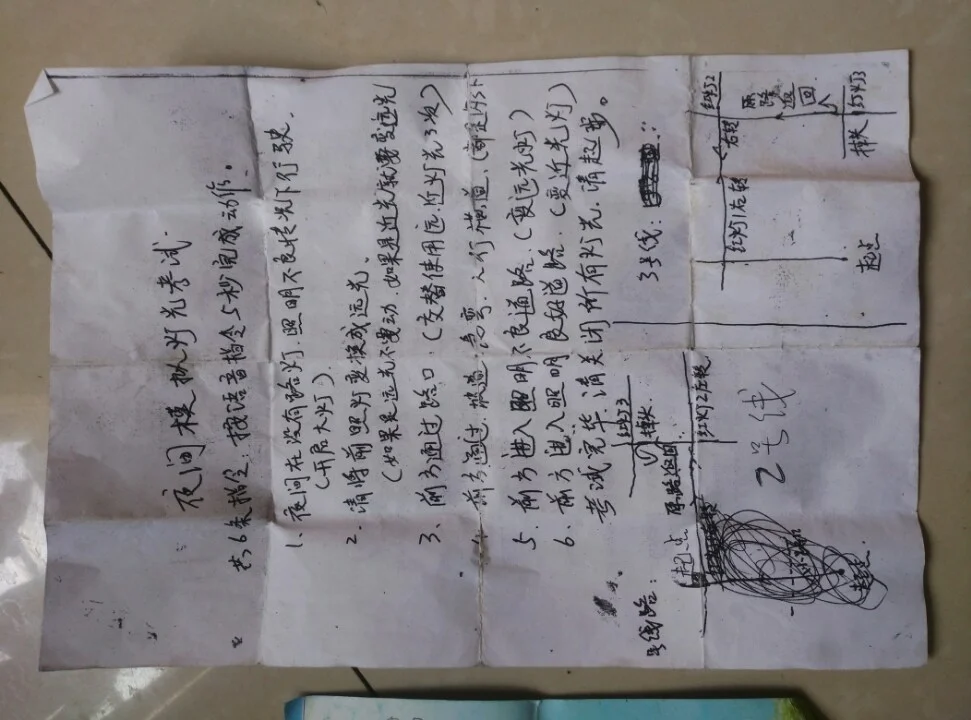 夜间模拟灯光考试
共6条指令，按语音指令5秒完成动作。
1、夜间在没有路灯，照明不良情况下行驶。
（开启大灯）.
2. 请将前照灯变换成远光。
（如果是远光不要动，如果是近光就需变远光
3、前方通过路口（交替使用远，近灯光3次）
前方通过，坡道，急弯，人行横道，
5. 前方进入照明不良道路.（变远光灯）
6. 前方进入照明良好道路.（变近光灯）
考试完毕 请关闭所有灯光，请起步。
号线路：
起点
原路返回
掉头
红灯3
红灯2左转
2号线
3号线：
起点
红灯1左转
右转
红灯2
原路返回
掉头
红灯3